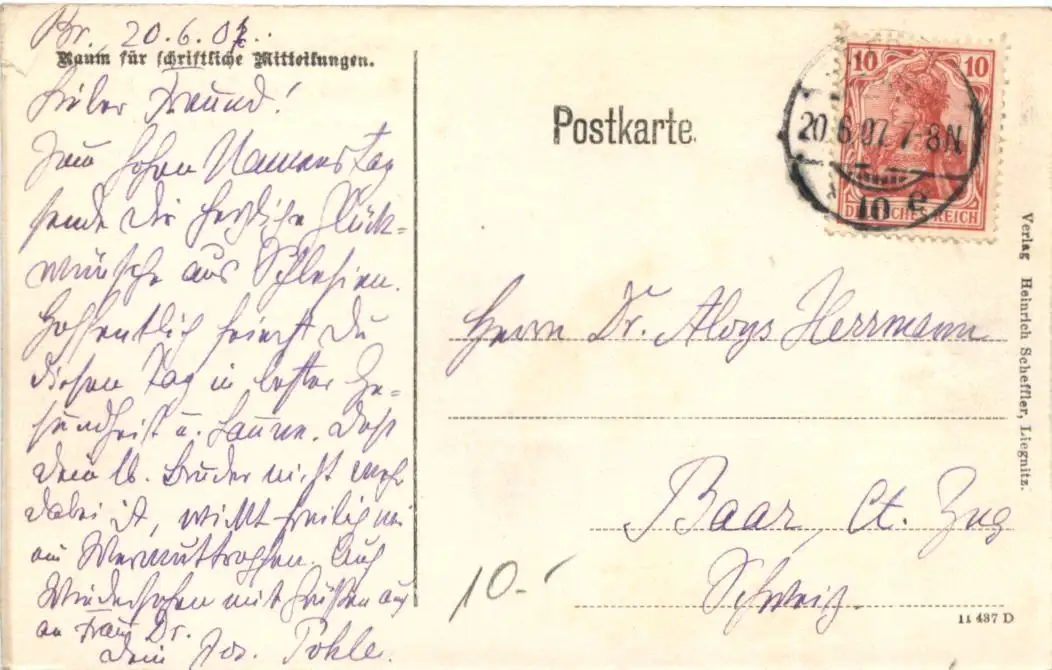 Br., 20.6.07.
Raum für schriftliche Mitteilungen.
Lieber Freund!
Zum hohen Namenstag
sende Dir herzliche Glück-
wünsche aus Schlesien.
Hoffentlich feierst Du
diesen Tag in bester Ge-
sundheit u. Laune. Daß
Dein lb. Bruder nicht mehr
dabei ist, wirkt freilich wie
ein Wermuttropfen. Auf
Wiedersehen mit Grüßen auch
an Frau Dr.
Dein Jos. Pohle.
Postkarte.
10 10
DEUTSCHES REICH
20.6.07. 7-8N
10 e
Herrn Dr. Aloys Herrmann
Baar, Ct. Zug
Schweiz.
10.-
Verlag Heinrich Scheffler, Liegnitz.
11 437 D